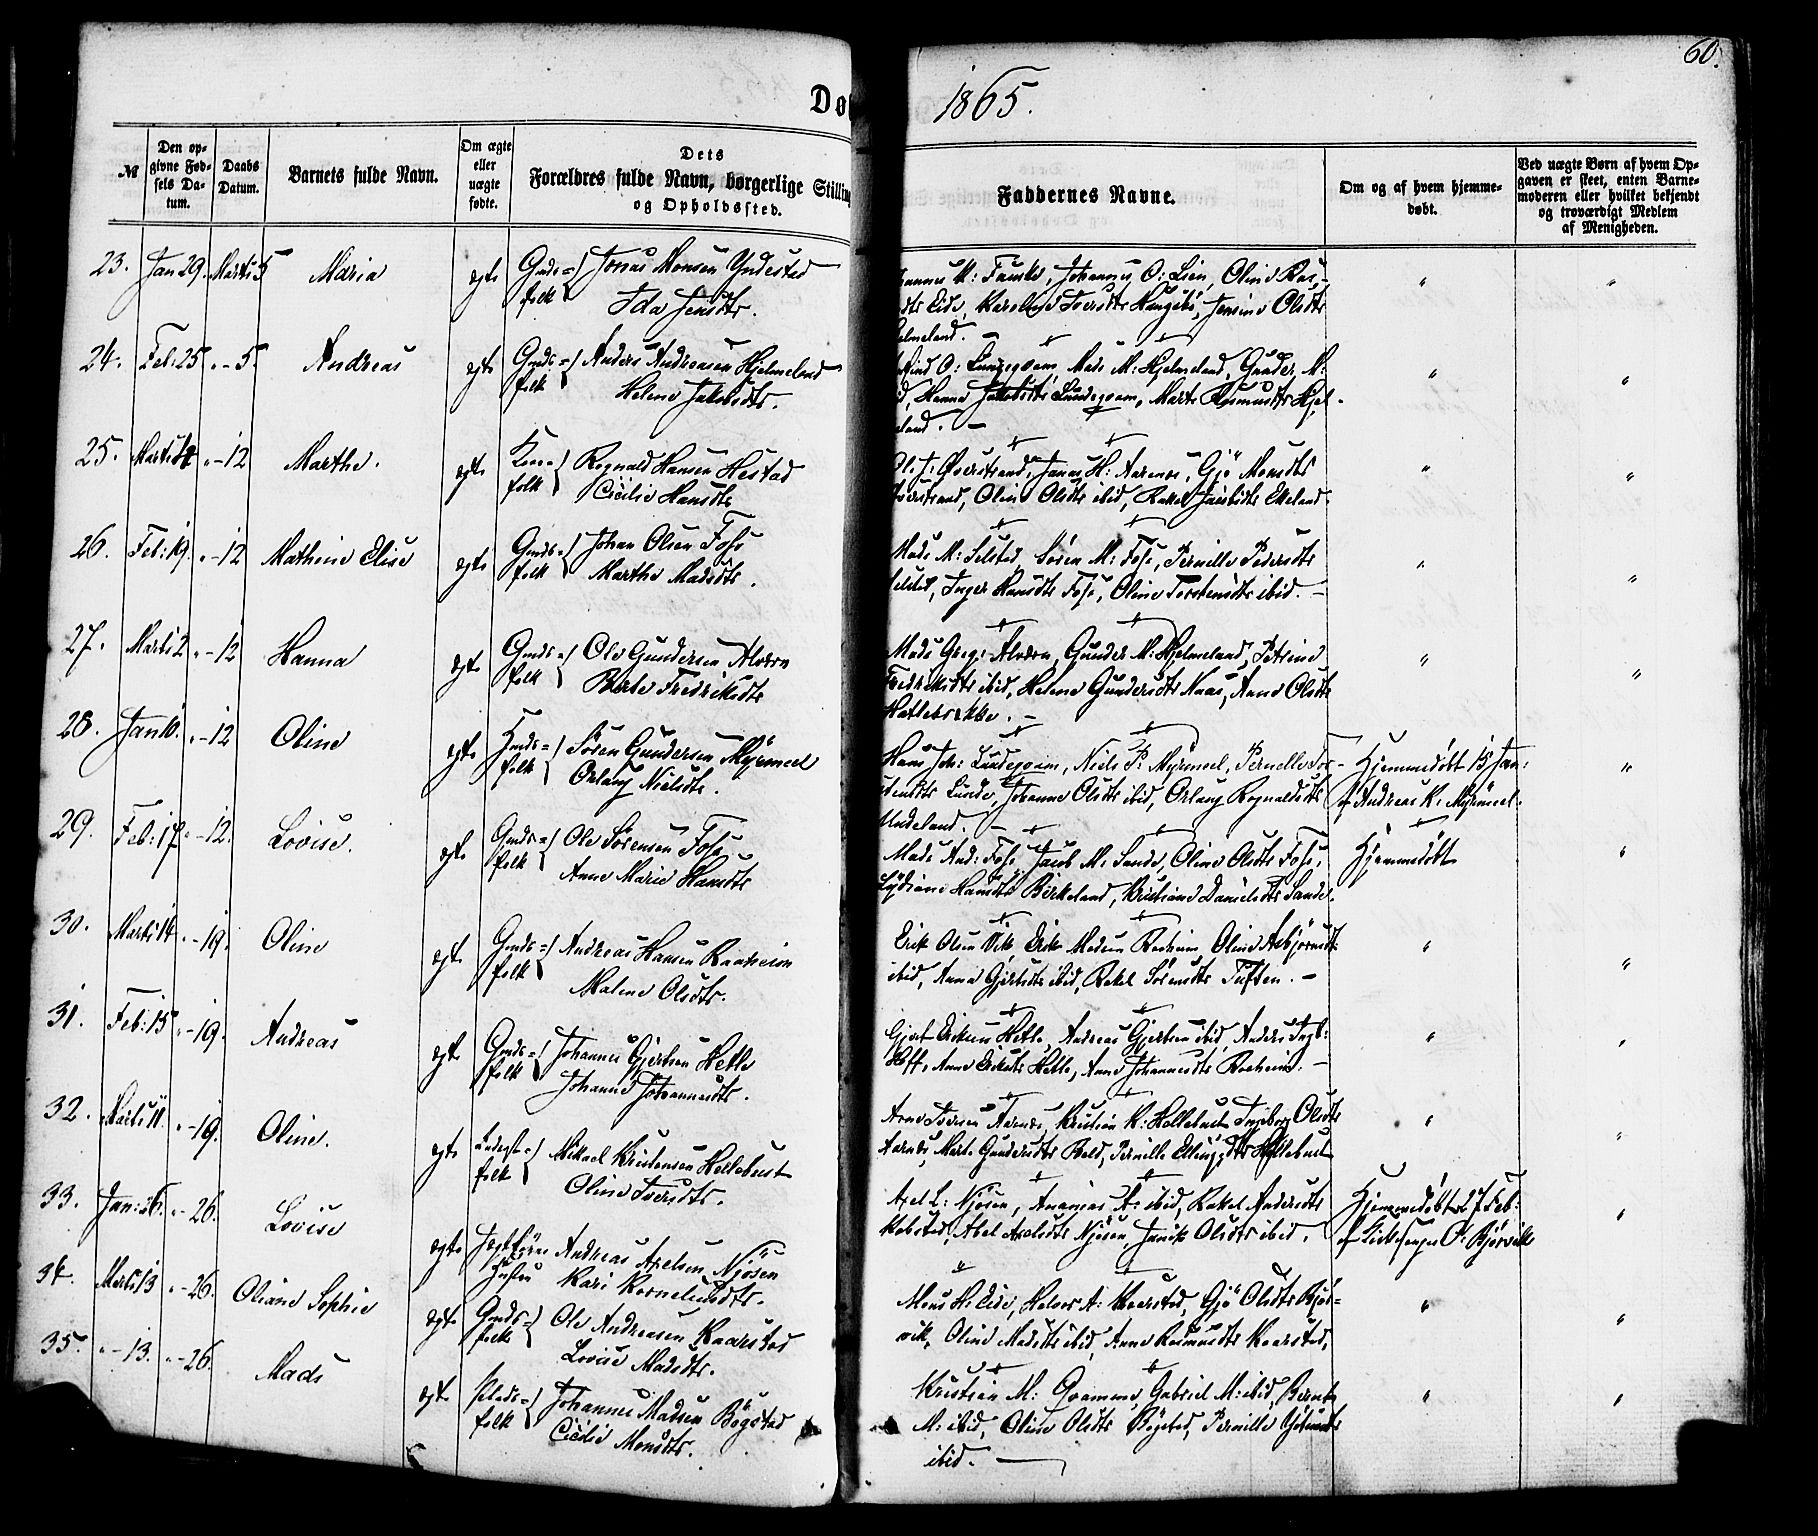 Dø
1865.
60.
№
Den op-
givne Fød-
sels Da-
tum.
Daabs
Datum.
Barnets fulde Navn.
Om ægte
eller
uægte
fødte.
Dets
Forældres fulde Navn, borgerlige Stillin
og Opholdssted.
Faddernes Navne.
Om og af hvem hjemme-
døbt.
Ved uægte Børn af hvem Op-
gaven er skeet, enten Barne-
moderen eller hvilket bekjendt
og troværdigt Medlem
af Menigheden.
23. Jan 29. Marts 5 Maria egte Gmds= folk Jonas Monsen Yndestad
Ida Jensdtr.
Johannes O: Lien, Oline Ras-
Eide, Karoline Iversdtr Jensine Olsdtr
24. Feb: 25 " - 5. Andreas egte Gmds= folk Anders Andreasen Hjelmeland
Helene Jakobsdtr.
O: Lundegaam, Mads M: Hjelmeland, Gunder M:
Hanna Jakobsdtr Lundegaam, Marte Rasmusdtr Hjel-
land. -
25. Marts " - 12 Marthe. egte folk Rognald Hansen Hestad
Cicilie Hansdtr
J: Øverstrand, Jonas H: Aarnes, Gjø Monsdtr
Oline Olsdtr ibid, Rakel Jacobsdtr
26. Feb: 19. " - 12 Mathine Elise egte Gmds= folk Johan Olsen Fose
Marthe Madsdtr.
Mads M: Selstad, Søren M: Fose, Pernille Pedersdtr
Inger Hansdtr Fose, Oline Torstensdtr ibid. -
27. Marts 2 " - 12 Hanna egte Gmds= folk Ole Gundersen Alværn
Berte Fredriksdtr
Mads Greg: Alværn, Gunder M: Hjelmeland, Petrine
Fredriksdtr ibid, Helene Gundersdtr Naas, Anne Olsdtr
28. Jan 10. " - 12 Oline egte folk Søren Gundersen Myrmeel
Orlaug Nielsdtr.
Hans Joh: Lundegaam, Niels P: Myrmeel, Pernelle Tor-
stensdtr Lunde, Johanne Olsdtr ibid, Orlaug Rognaldsdtr
Undeland. -
Hjemmedøbt 15 Jan:
af Andreas K: Myrmeel.
29. Feb: 17. " - 12. Lovise. egte Gmds= folk Ole Sørensen Fose
Anne Marie Hansdtr
Mads And: Fose, Jacob M: Sande, Oline Olsdtr Fose,
Lydiane Hansdtr Birkeland, Kristiane Danielsdtr Sande.
Hjemmedøbt
30. Marts 14 " - 19. Oline egte Gmds= folk Andreas Hansen Raaheim
Malene Olsdtr.
Erik Olsen Vik, Erik Madsen Roeheim, Oline Asbjørnsdtr
ibid, Anna Gjertsdtr ibid, Rakel Sørensdtr Tuften. -
31. Feb: 15 " - 19. Andreas egte Gmds= folk Johannes Gjertsen Hetle
Johanne Johannesdtr.
Gjert Eriksen Hetle, Andreas Gjertsen ibid, Anders Ingb:
Anne Eriksdtr Hetle, Anne Johannesdtr Roeheim. -
32. Marts 11. " - 19. Oline. egte folk Mikael Kristensen Hellebust
Oline Iversdtr.
Arne Iversen Aarnes, Kristian K: Hellebust, Ingeborg Olsdtr
Aarnes, Marte Gundersdtr Pernille Ellingsdtr Hellebust
33. Jan: 26. " - 26. Lovise egte Andreas Axelsen Njøsen
Hustru Kari Kornelius­dtr.
Axel L: Njøsen, Ananias A: ibid, Rakel Andersdtr
Abel Axelsdtr Njøsen, Olsdtr ibid.
Hjemmedøbt 27 Feb:
af Kirkesanger P: Bjørvik
34. Marts 13 " - 26. Oliane Sophie egte Gmds= folk Ole Andreasen Kaarstad
Lovise Madsdtr.
Mons H: Eide, Helvor A: Kaarstad, Gjø Olsdtr Bjør=
vik, Oline Madsdtr ibid, Anne Rasmusdtr Kaarstad,
35. " - 13. " - 26. Mads egte folk Johannes Madsen Bøgstad
Cicilie Monsdtr.
Kristian M: Qvamme, Gabriel M: ibid, Bernt
M: ibid, Oline Olsdtr Bøgstad, Pernille
ibid. -